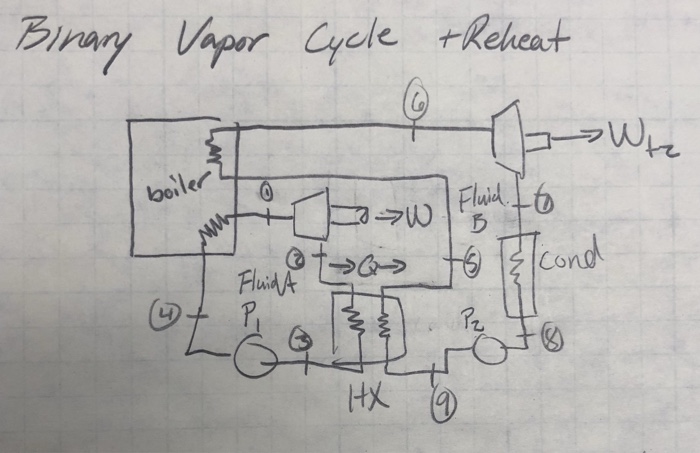 Binary Vapor Cycle + Reheat
6
W t2
boiler
1
W
Fluid B
7
2
Q
5
Cond
Fluid A
4
P1
3
P2
8
HX
9